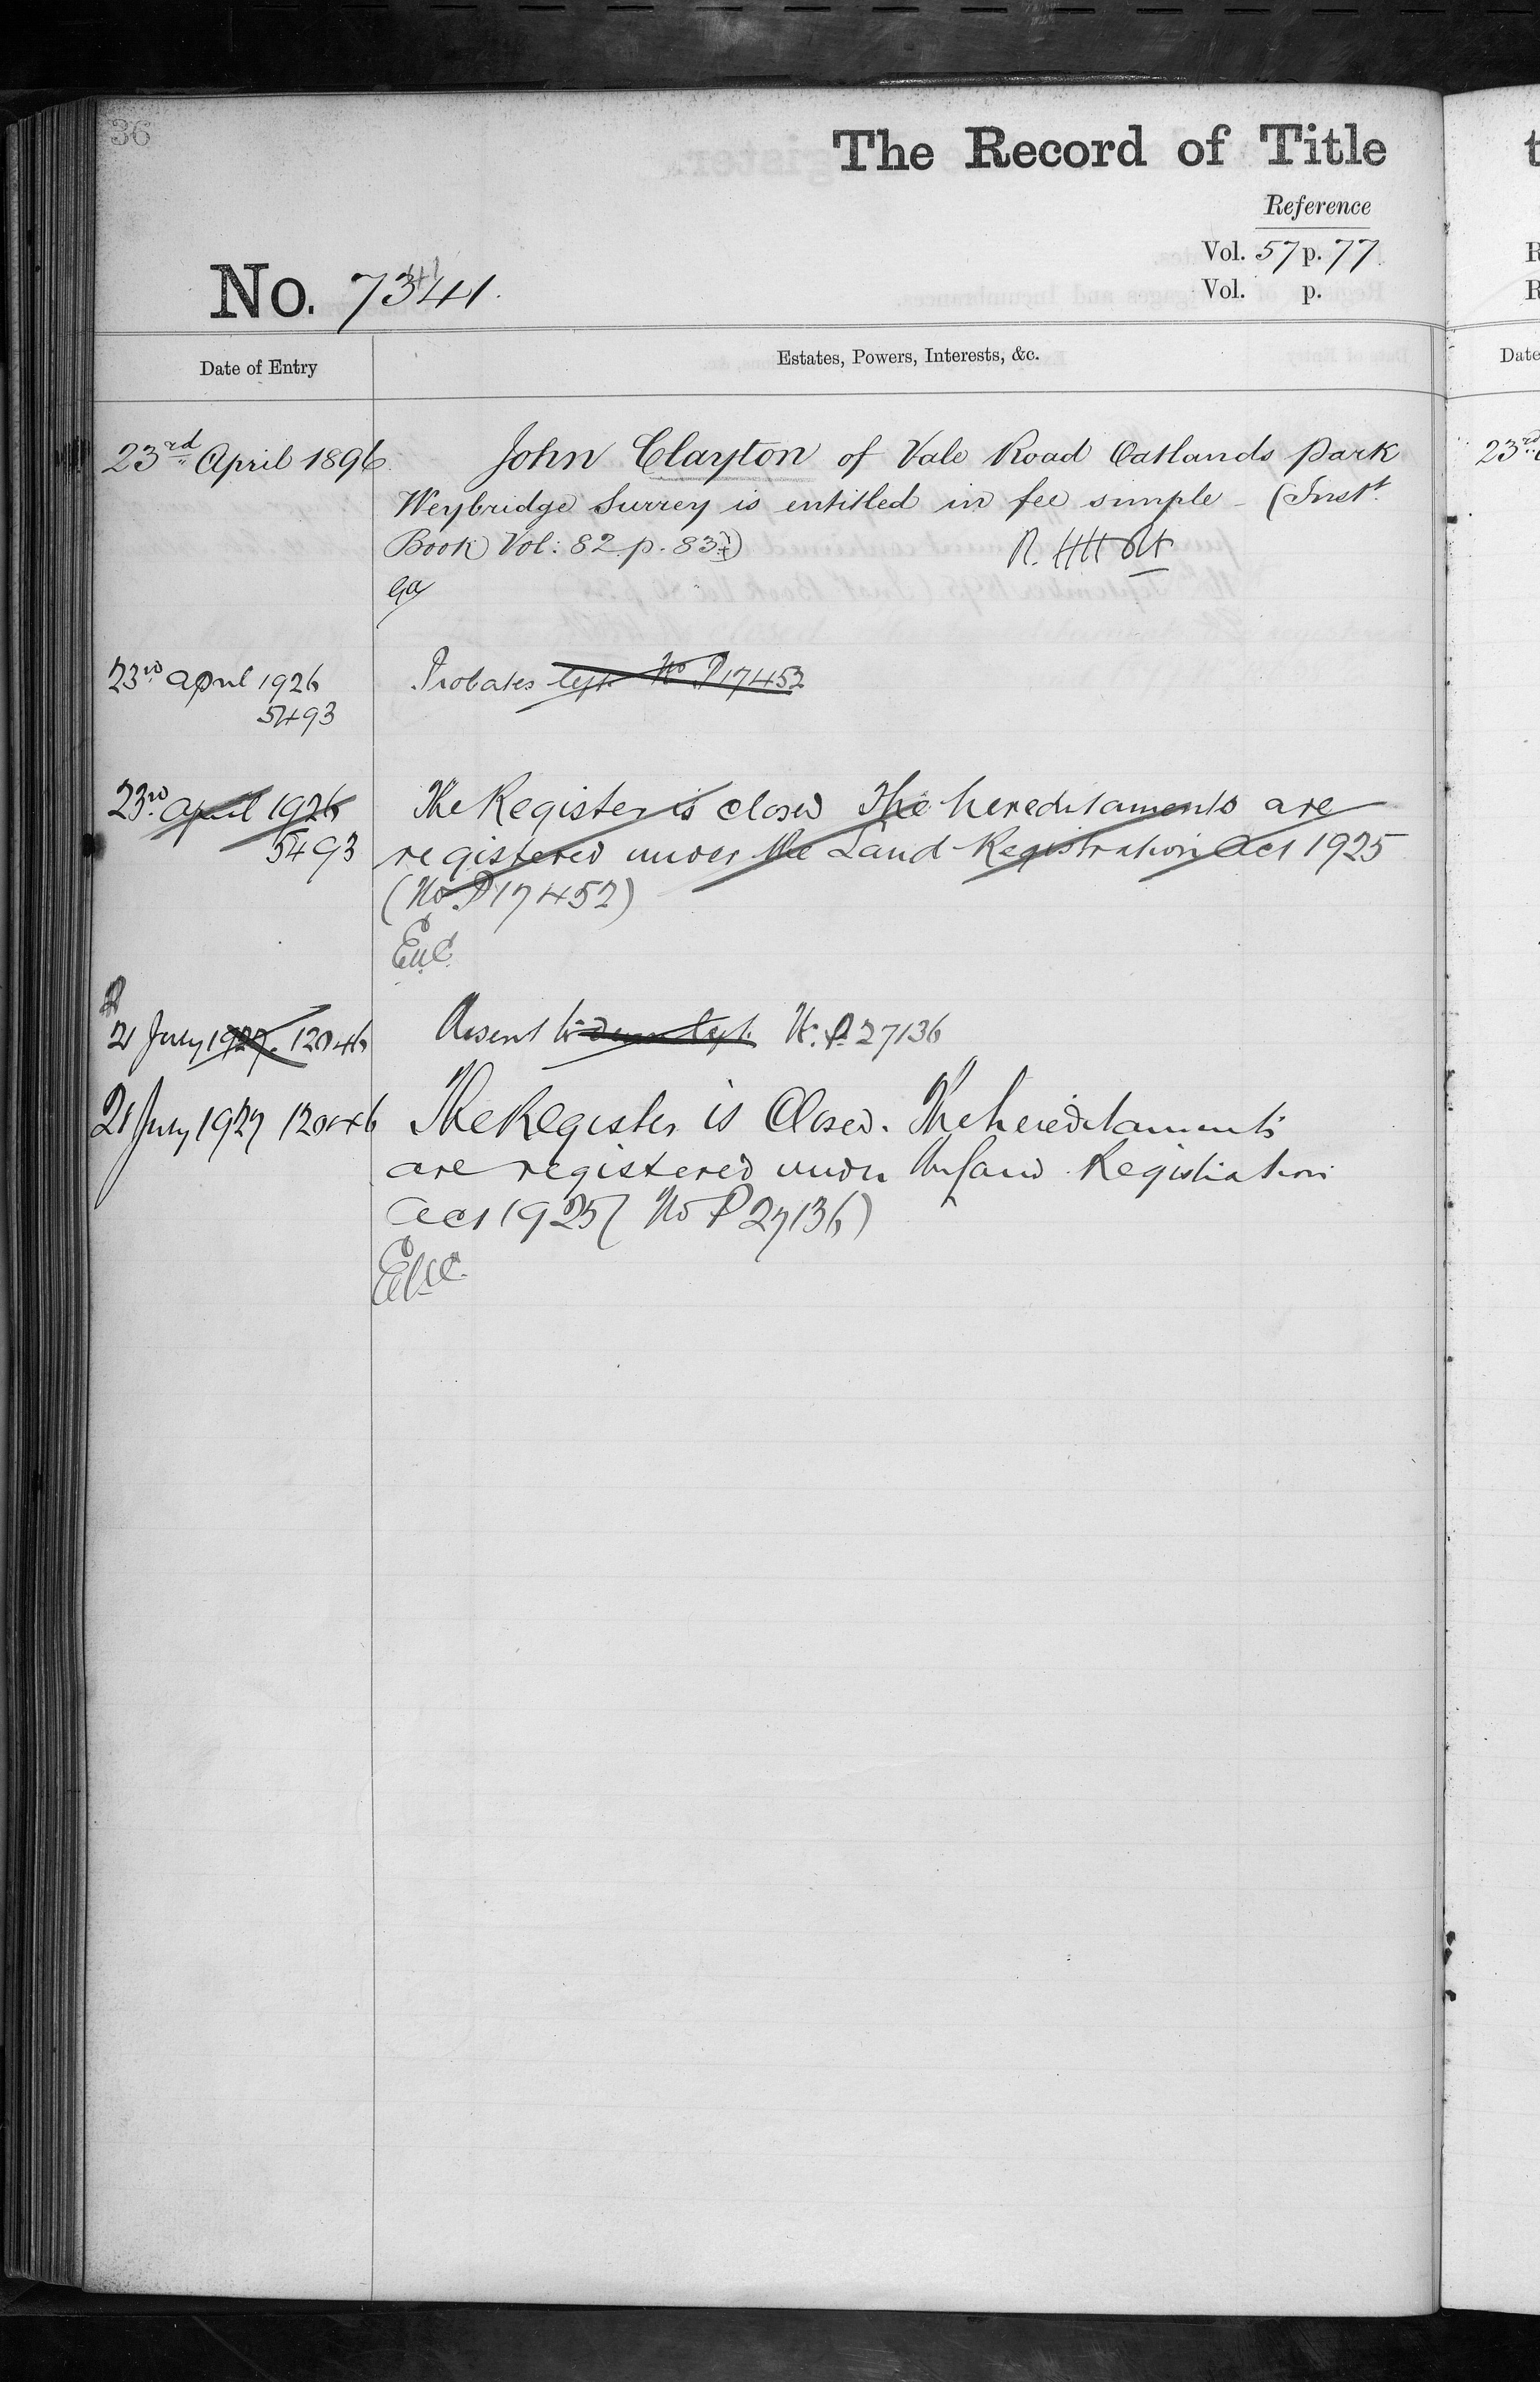 36
The Record of Title
Reference
Vol. 57 p. 77
Vol. p.
No. 7341.
Date of Entry
Estates, Powers, Interests, &c.
23rd April 1896 John Clayton of Vale Road Oatlands Park
Weybridge Surrey is entitled in fee simple - (Instt.
Book Vol: 82. p. 83
23rd April 1926 Probates No P17452
5493
23rd April 1926 The Register is closed The hereditaments are
5493 registered under the Land Registration Act 1925
(No. P17452)
21 July 1927. 12046 Assent No. P. 27136
21 July 1927 12046 The Register is Closed. The hereditaments
are registered under the Land Registration
Act 1925 (No P 27136)
23rd
Date